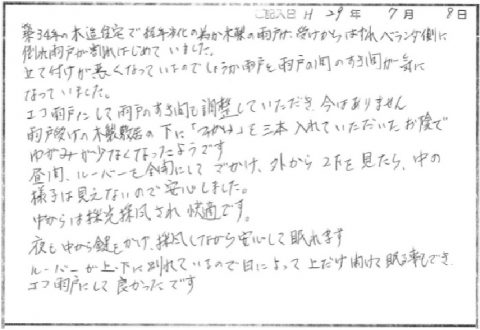 ご記入日 H 29年 7月 8日
築34年の木造住宅で経年劣化の為か木製の雨戸が受けからはずれベランダ側に
倒れ雨戸が割れはじめていました。
立て付けが悪くなっているのでしょうか雨戸と雨戸の間のすき間が気に
なっていました。
エコ雨戸にして雨戸のすき間も調整していただき今はありません
雨戸受けの木製敷居の下に「つかい」を三本入れていただいたお陰で
ゆがみが少なくなったようです
昼間、ルーバーを全開にしてでかけ、外から2Fを見たら、中の
様子は見えないので安心しました。
中からは採光採風され快適です。
夜も中から鍵をかけ、採風しながら安心して眠れます
ルーバーが上下に別れているので日によって上だけ開けて眠る事もでき
エコ雨戸にして良かったです